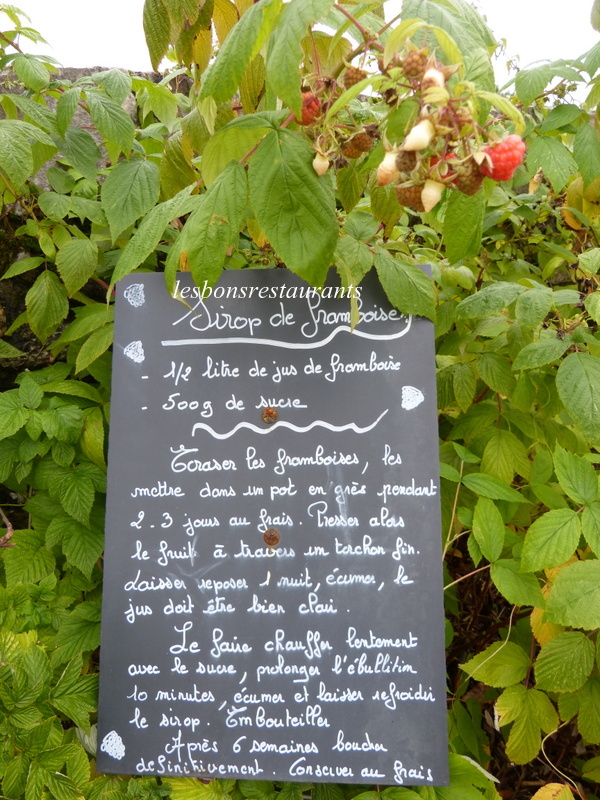 lesbonsrestaurants
Sirop de framboises
- 1/2 litre de jus de framboise
- 500g de sucre
Ecraser les framboises, les
mettre dans un pot en grès pendant
2-3 jours au frais. Presser alors
le fruit à travers un torchon fin.
Laisser reposer 1 nuit, écumer, le
jus doit être bien clair.
Le faire chauffer lentement
avec le sucre, prolonger l'ébullition
10 minutes, écumer et laisser refroidir
le sirop. Embouteiller
Après 6 semaines boucher
definitivement. Conserver au frais